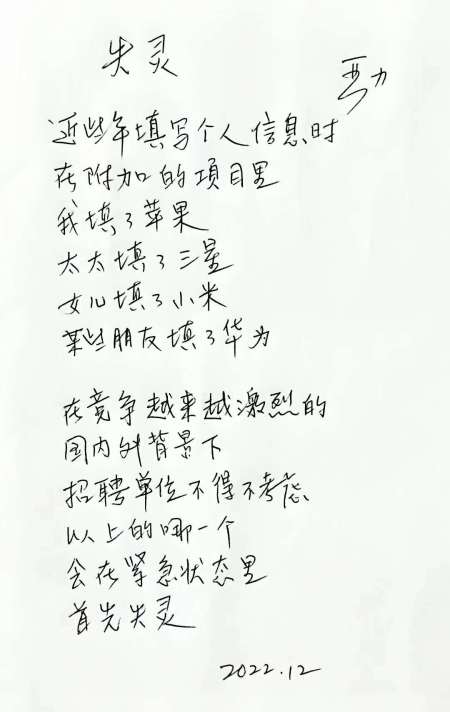 失灵
亚力
近些年填写个人信息时
在附加的项目里
我填了苹果
太太填了三星
女儿填了小米
某些朋友填了华为
在竞争越来越激烈的
国内外背景下
招聘单位不得不考虑
以上的哪一个
会在紧急状态里
首先失灵
2022.12